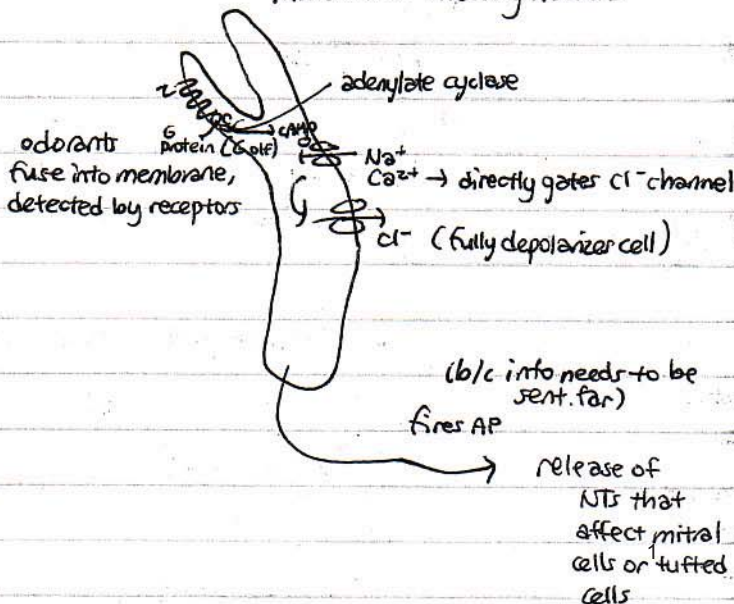 adenylate cyclase
G
Protein (Golf)
cAMP
odorants
fuse into membrane,
detected by receptors
Na⁺
Ca²⁺ → directly gates Cl⁻ channel
Cl⁻ (fully depolarizes cell)
(b/c info needs to be
sent far)
fires AP
release of
NTs that
affect mitral
cells or tufted
cells